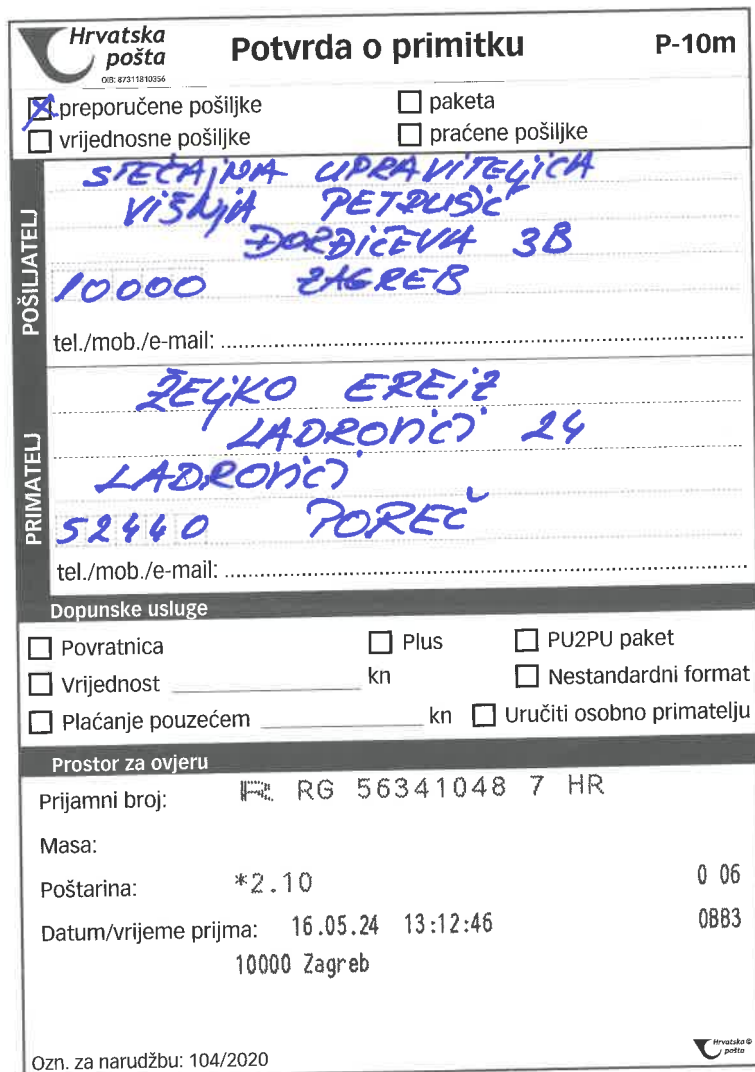 Hrvatska
pošta
OIB: 87311810356
Potvrda o primitku
P-10m
preporučene pošiljke
paketa
vrijednosne pošiljke
praćene pošiljke
POŠILJATELJ
STEČAJNA UPRAVITELJICA
VIŠNJA PETRUŠIĆ
ĐORĐIĆEVA 3B
10000 ZAGREB
tel./mob./e-mail:
PRIMATELJ
ŽELJKO EREIZ
LADROVIĆI 24
LADROVIĆI
52440 POREČ
tel./mob./e-mail:
Dopunske usluge
Povratnica
Plus
PU2PU paket
Vrijednost kn
Nestandardni format
Plaćanje pouzećem kn
Uručiti osobno primatelju
Prostor za ovjeru
Prijamni broj: R RG 56341048 7 HR
Masa:
Poštarina: *2.10 0 06
Datum/vrijeme prijma: 16.05.24 13:12:46 0BB3
10000 Zagreb
Hrvatska
pošta
Ozn. za narudžbu: 104/2020